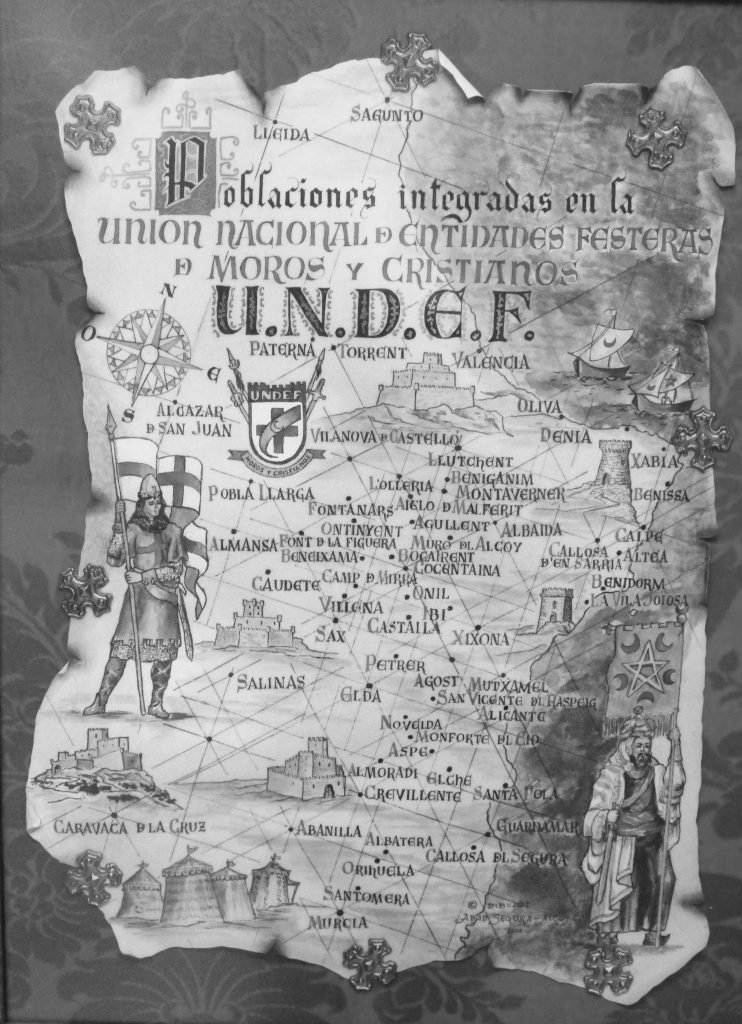 SAGUNTO
LLEIDA
Poblaciones integradas en la
UNION NACIONAL D ENTIDADES FESTERAS
D MOROS Y CRISTIANOS
U.N.D.E.F.
N
O
E
S
PATERNA TORRENT
VALENCIA
ALCAZAR
D SAN JUAN
UNDEF
MOROS Y CRISTIANOS
OLIVA
VILANOVA D CASTELLO
DENIA
LLUTCHENT
XABIA
BENIGANIM
L'OLLERIA
POBLA LLARGA
MONTAVERNER
BENISSA
FONTANARS
AIELO D MALFERIT
ONTINYENT
AGULLENT
ALBAIDA
ALMANSA
FONT D LA FIGUERA
MURO DL ALCOY
CALPE
BENEIXAMA
BOCAIRENT
CALLOSA
D'EN SARRIA
ALTEA
COCENTAINA
CAUDETE
CAMP D MIRRA
BENIDORM
ONIL
VILLENA
LA VILA JOIOSA
IBI
SAX
CASTALLA
XIXONA
PETRER
SALINAS
AGOST
MUTXAMEL
ELDA
SAN VICENTE DL RASPEIG
ALICANTE
NOVELDA
MONFORTE DL CID
ASPE
ALMORADI
ELCHE
CREVILLENTE
SANTA POLA
CARAVACA D LA CRUZ
ABANILLA
GUARDAMAR
ALBATERA
CALLOSA DL SEGURA
ORIHUELA
SANTOMERA
MURCIA
© DIBUJOS
ABAD SEGURA - ALCOY